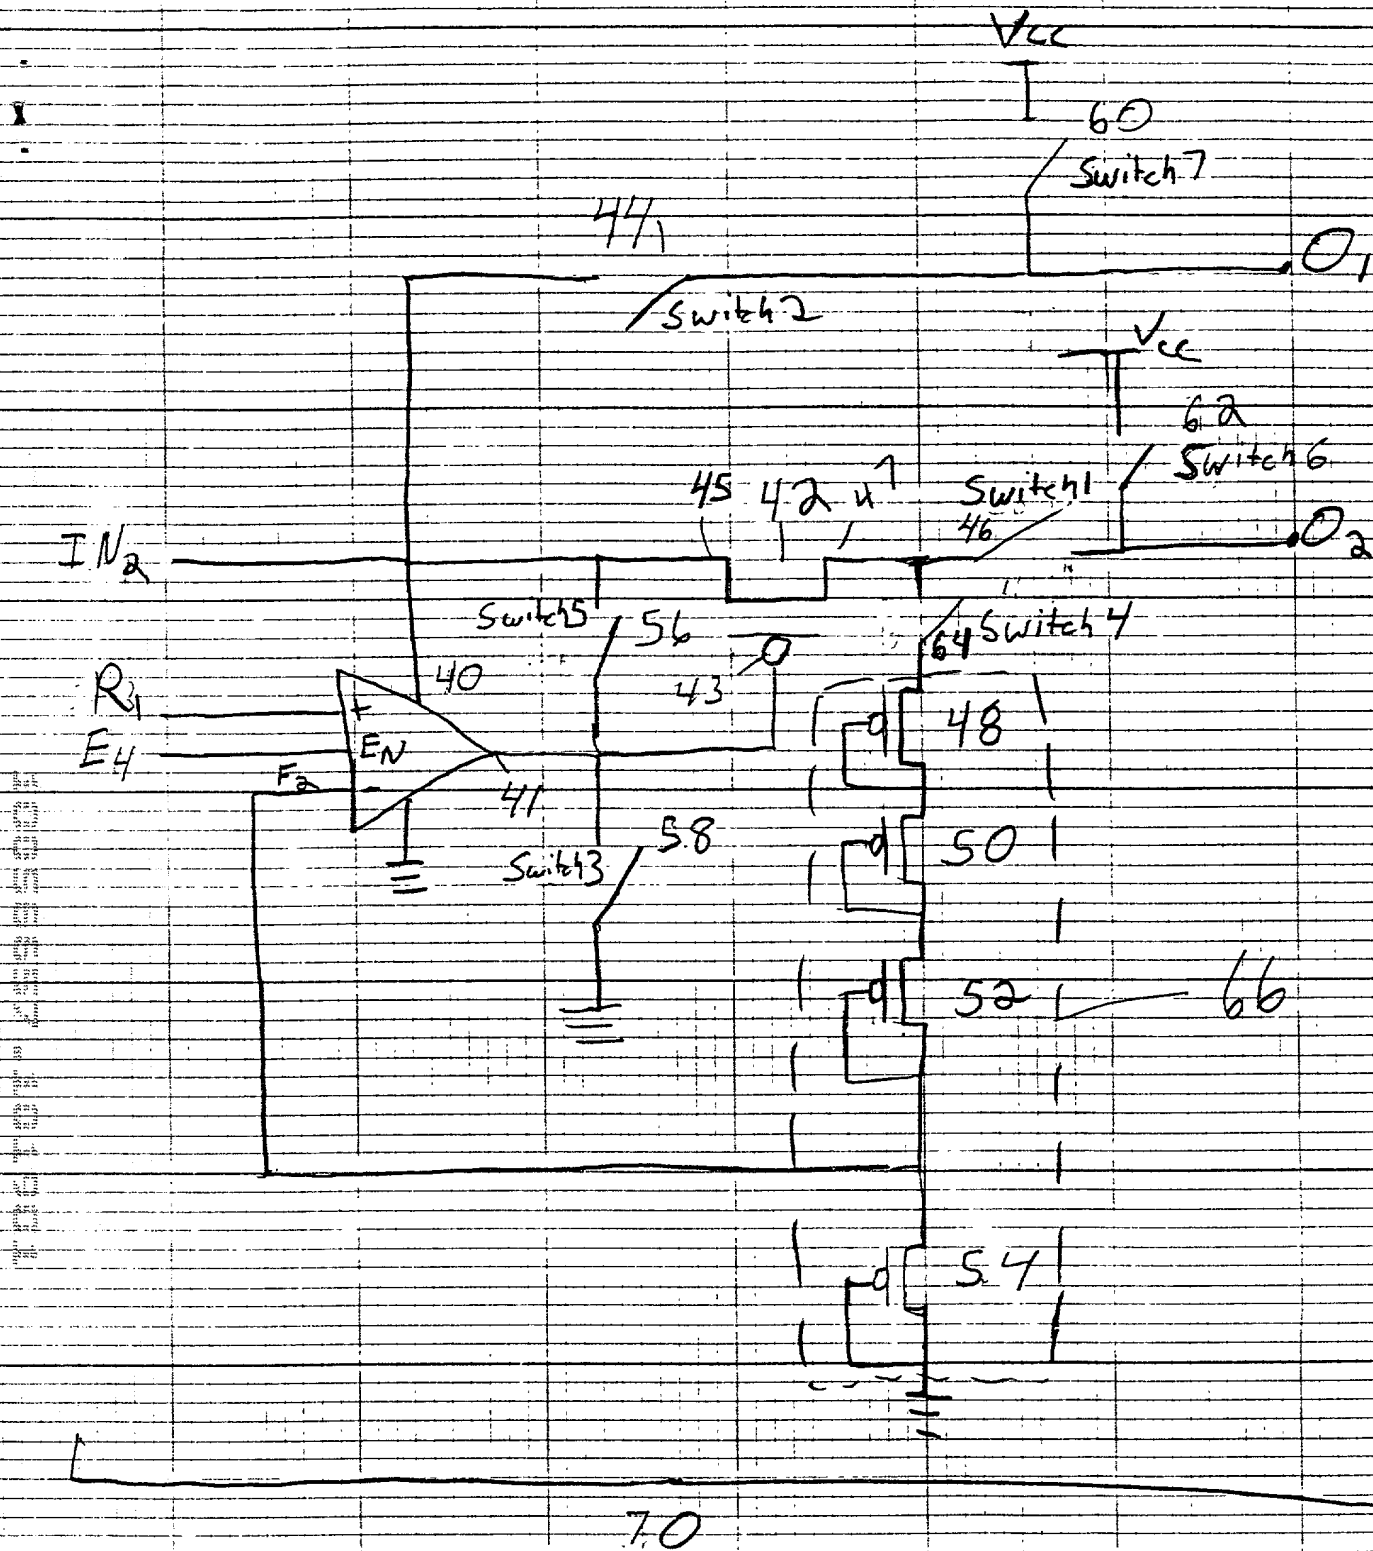 Vcc
60
Switch 7
44
O1
Switch 2
Vcc
62
Switch 6
45 42 47 Switch 1
46
IN2
O2
Switch 5 56
64 Switch 4
43
R1
+ 40
48
E4
EN
F2
-
41
58
50
Switch 3
52
66
54
70